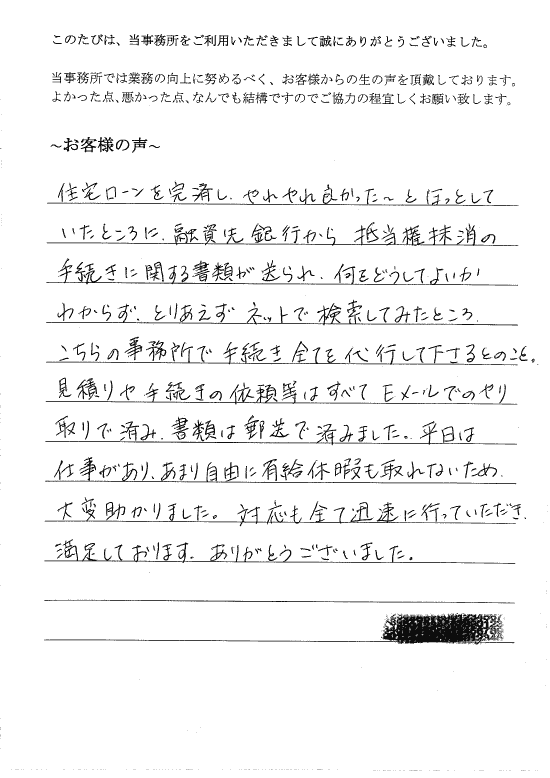 このたびは、当事務所をご利用いただきまして誠にありがとうございました。
当事務所では業務の向上に努めるべく、お客様からの生の声を頂戴しております。
よかった点、悪かった点、なんでも結構ですのでご協力の程宜しくお願い致します。
～お客様の声～
住宅ローンを完済し、やれやれ良かった～とほっとして
いたところに、融資先銀行から 抵当権抹消の
手続きに関する書類が送られ、何をどうしてよいか
わからず、とりあえずネットで検索してみたところ、
こちらの事務所で手続き全てを代行して下さるとのこと。
見積りや手続きの依頼等はすべてEメールでのやり
取りで済み、書類は郵送で済みました。平日は
仕事があり、あまり自由に有給休暇も取れないため、
大変助かりました。対応も全て迅速に行っていただき、
満足しております。ありがとうございました。